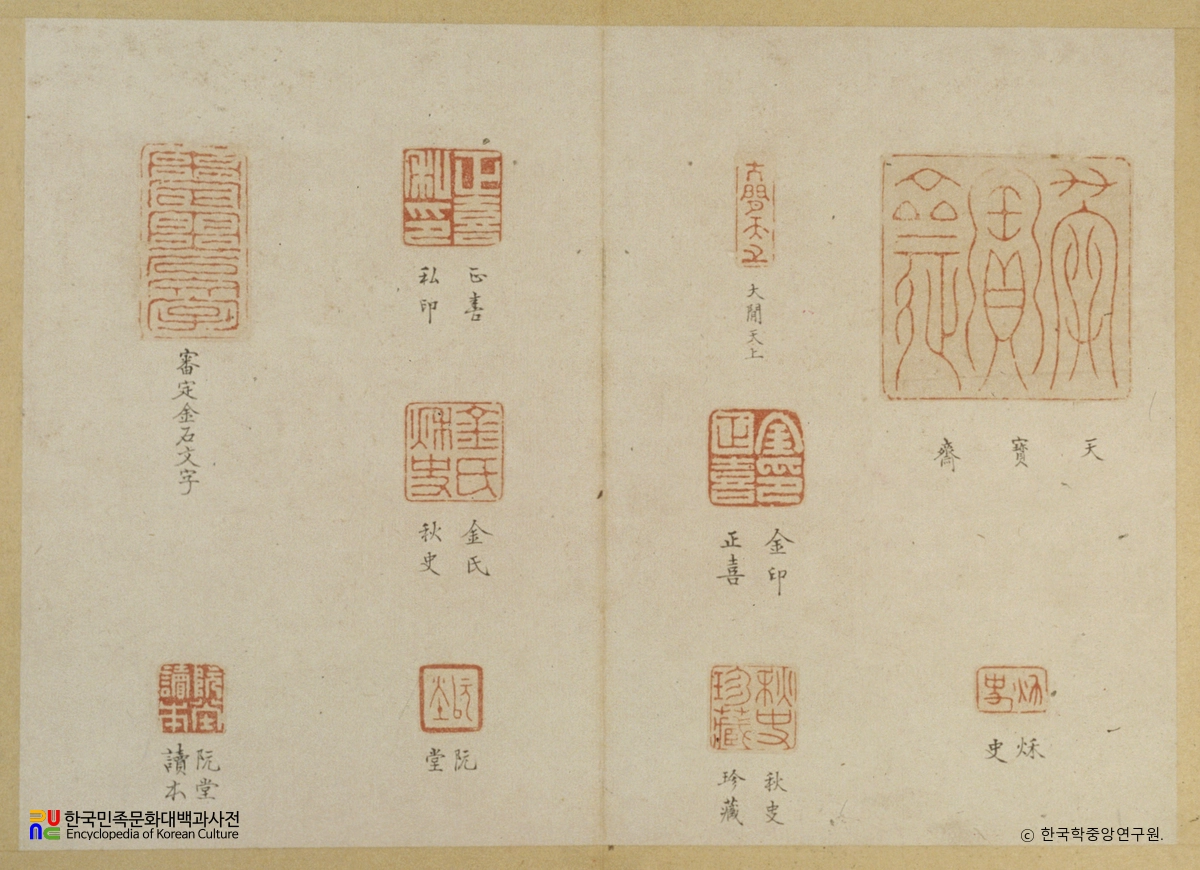 天寶齋
秌史
大閒天上
金印
正喜
秋史
珍藏
正喜
私印
金氏
秋史
阮堂
審定金石文字
阮堂
讀本
한국민족문화대백과사전
Encyclopedia of Korean Culture
ⓒ 한국학중앙연구원.